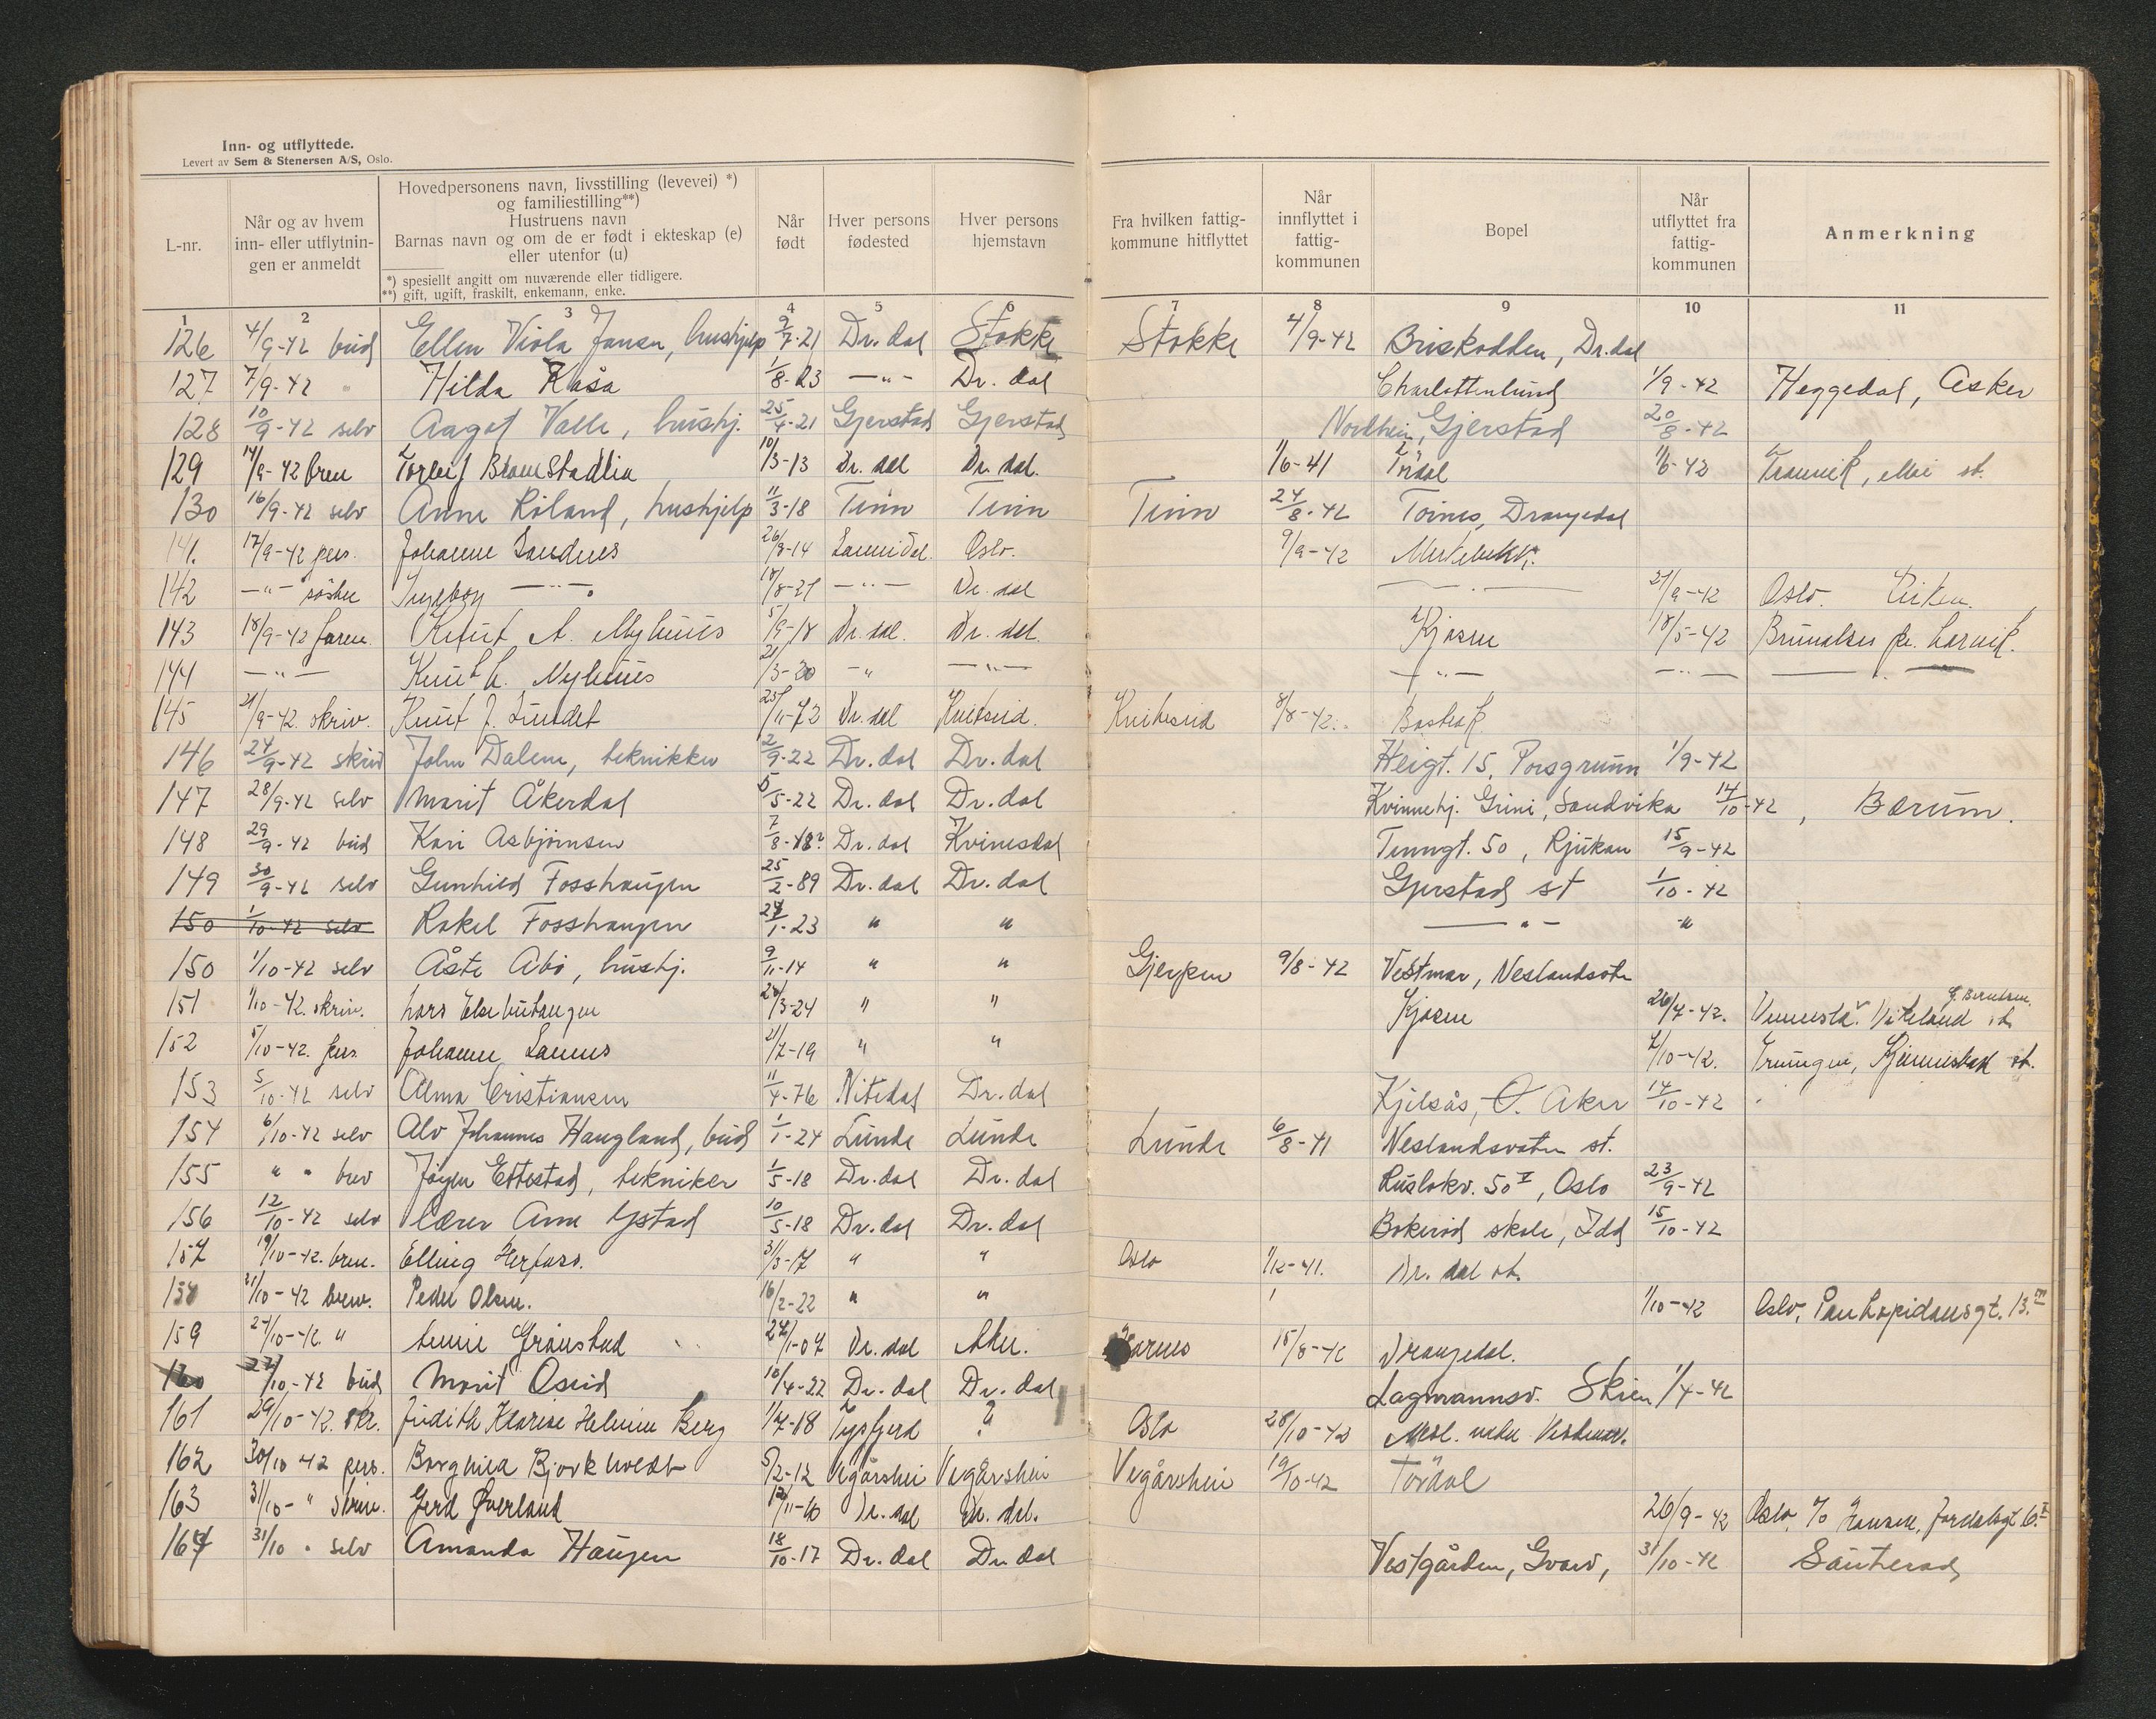 Inn- og utflyttede.
Levert av Sem & Stenersen A/S, Oslo.
L-nr.
Når og av hvem inn- eller utflytnin-gen er anmeldt
Hovedpersonens navn, livsstilling (levevei) *)
og familiestilling**)
Hustruens navn
Barnas navn og om de er født i ekteskap (e)
eller utenfor (u)
*) spesiellt angitt om nuværende eller tidligere.
**) gift, ugift, fraskilt, enkemann, enke.
Når født
Hver persons fødested
Hver persons hjemstavn
Fra hvilken fattig-kommune hitflyttet
Når innflyttet i fattig-kommunen
Bopel
Når utflyttet fra fattig-kommunen
Anmerkning
1 2 3 4 5 6 7 8 9 10 11
126 4/9-42 bud Ellen Viola Jansen, hushjelp 2/7-21 Dr.dal Stokke Stokke 4/9-42 Briskodden, Dr.dal
127 7/9-42 " Hilda Kåsa 1/8-23 -"- Dr. dal Charlottenlund 1/9-42 Heggedal, Asker
128 10/9-42 selv Aagot Valle, hushj. 25/4-21 Gjerstad Gjerstad Gjerstad 20/8-42
129 14/9-42 brev 10/3-13 Dr. dal Dr. dal. 1/6-41 1/6-42
130 16/9-42 selv Anne Røland, hushjelp 11/3-18 Tinn Tinn Tinn 24/8-42 Toines, Drangedal
141. 17/9-42 pers. Johanne Sandnes 26/8-14 Sannidal. Oslo. 9/9-42
142 -"- søster Ingeborg -"- -"- Dr. dal 21/9-42 Oslo.
143 18/9-42 faren. Knut A. Nyhuus 5/9-18 Dr. dal. Dr. dal. Kjosen 18/5-42 Brunalnes pr. Larvik.
144 -"- Knut L. Nyhuus 21/3-20 -" -"- -"- -"-
145 21/9-42. skriv. Knut J. Lundet Dr. dal Kviteseid. Kviteseid 8/8-42. Bostrak
146 24/9-42 skriv John Dalene, teknikker 2/9-22 Dr. dal Dr. dal Heigt. 15, Porsgrunn 1/9-42
147 28/9-42 selv Marit Åkerdal 5/5-22 Dr. dal Dr. dal Kvinnehj. Grini, Sandvika 14/10-42, Bærum.
148 29/9-42 bud Kari Asbjørnsen Dr. dal Kvinesdal Tinngt. 50, Rjukan 15/9-42
149 30/9-42 selv Gunhild Fosshaugen 25/2-89 Dr. dal Dr. dal Gjerstad st 1/10-42
150 1/10-42 selv Rakel Fosshaugen " " -"- "
150 1/10-42 selv Åste Abø, hushj. 9/11-14 " " Gjerpen 9/8-42 Vestmar, Neslandsvatn
151 1/10-42. skriv. Lars 20/3-24 " " Kjosen 26/4-42. Vennesla. Vikeland st.
152 5/10-42. pers. Johanne " " 7/10-42.
153 5/10-42 selv Alma Cristiansen 11/4-76 Nitedal Dr. dal Kjelsås, Ø. Aker 14/10-42
154 6/10-42 selv Alv Johannes Haugland, bud 1/1-24 Lunde Lunde Lunde 6/8-41 Neslandsvatn st.
155 " " brev Jørgen Ettestad, tekniker 1/5-18 Dr. dal Dr. dal Ruslokv. 50 V, Oslo 23/9-42
156 12/10-42 selv lærer Arne Ystad 10/5-18 Dr. dal Dr. dal Bokerød skole, Idd 15/10-42
157 19/10-42. brev. Elling Herfoss. " " Oslo 1/12-41. Dr. dal st.
158 21/10-42 brev. Peder Olsen. 16/2-22 " " 1/10-42 Oslo,
159 24/10-42. " Grønstad 24/1-07 Dr. dal Aker. 15/8-42 Drangedal.
160 27/10-42 bud Marit Oseid 10/4-22 Dr. dal Dr. dal Lagmannsv. Skien 1/4-42
161 29/10-42. skr. Judith Klarise Helmine Berg 1/7-18 Tysfjord ? Oslo 28/10-42
162 30/10 42 pers. Borghild Bjorkholdt 5/2-12 Vegårshei Vegårshei Vegårshei 19/10-42 Tørdal
163 31/10-" skriv. Gerd Øverland Dr. dal Dr. dal. 26/9-42 Oslo, c/o Hansen,
164 31/10 " selv Amanda Haugen 18/10-17 Dr. dal Dr. dal Vestgården, Gvarv, 31/10-42 Sauherad